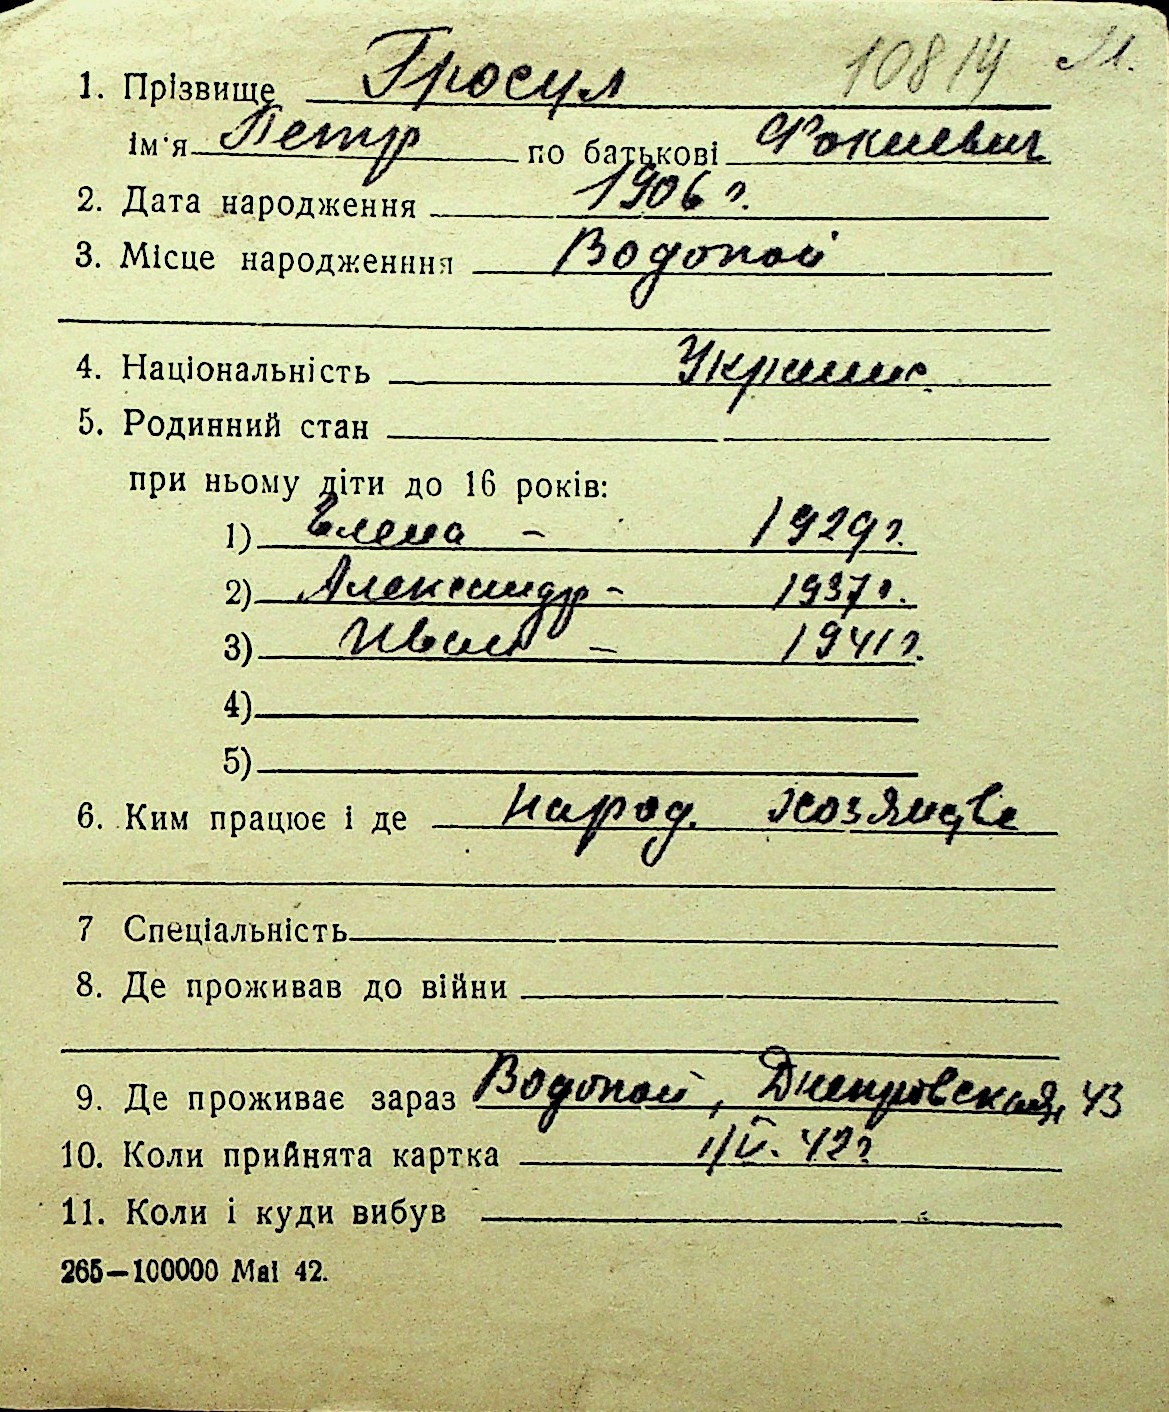 10814 М.
1. Прізвище Гросул
ім'я Петр по батькові Фокиевич
2. Дата народження 1906 г.
3. Місце народженння Водопой
4. Національність Украинс.
5. Родинний стан
при ньому діти до 16 років:
1) Елена - 1929 г.
2) Александр - 1937 г.
3) Иван - 1941 г.
4)
5)
6. Ким працює і де народ. хозяйстве
7 Спеціальність
8. Де проживав до війни
9. Де проживає зараз Водопой, Днепровская, 43
10. Коли прийнята картка 1/V. 42 г
11. Коли і куди вибув
265—100000 Mai 42.